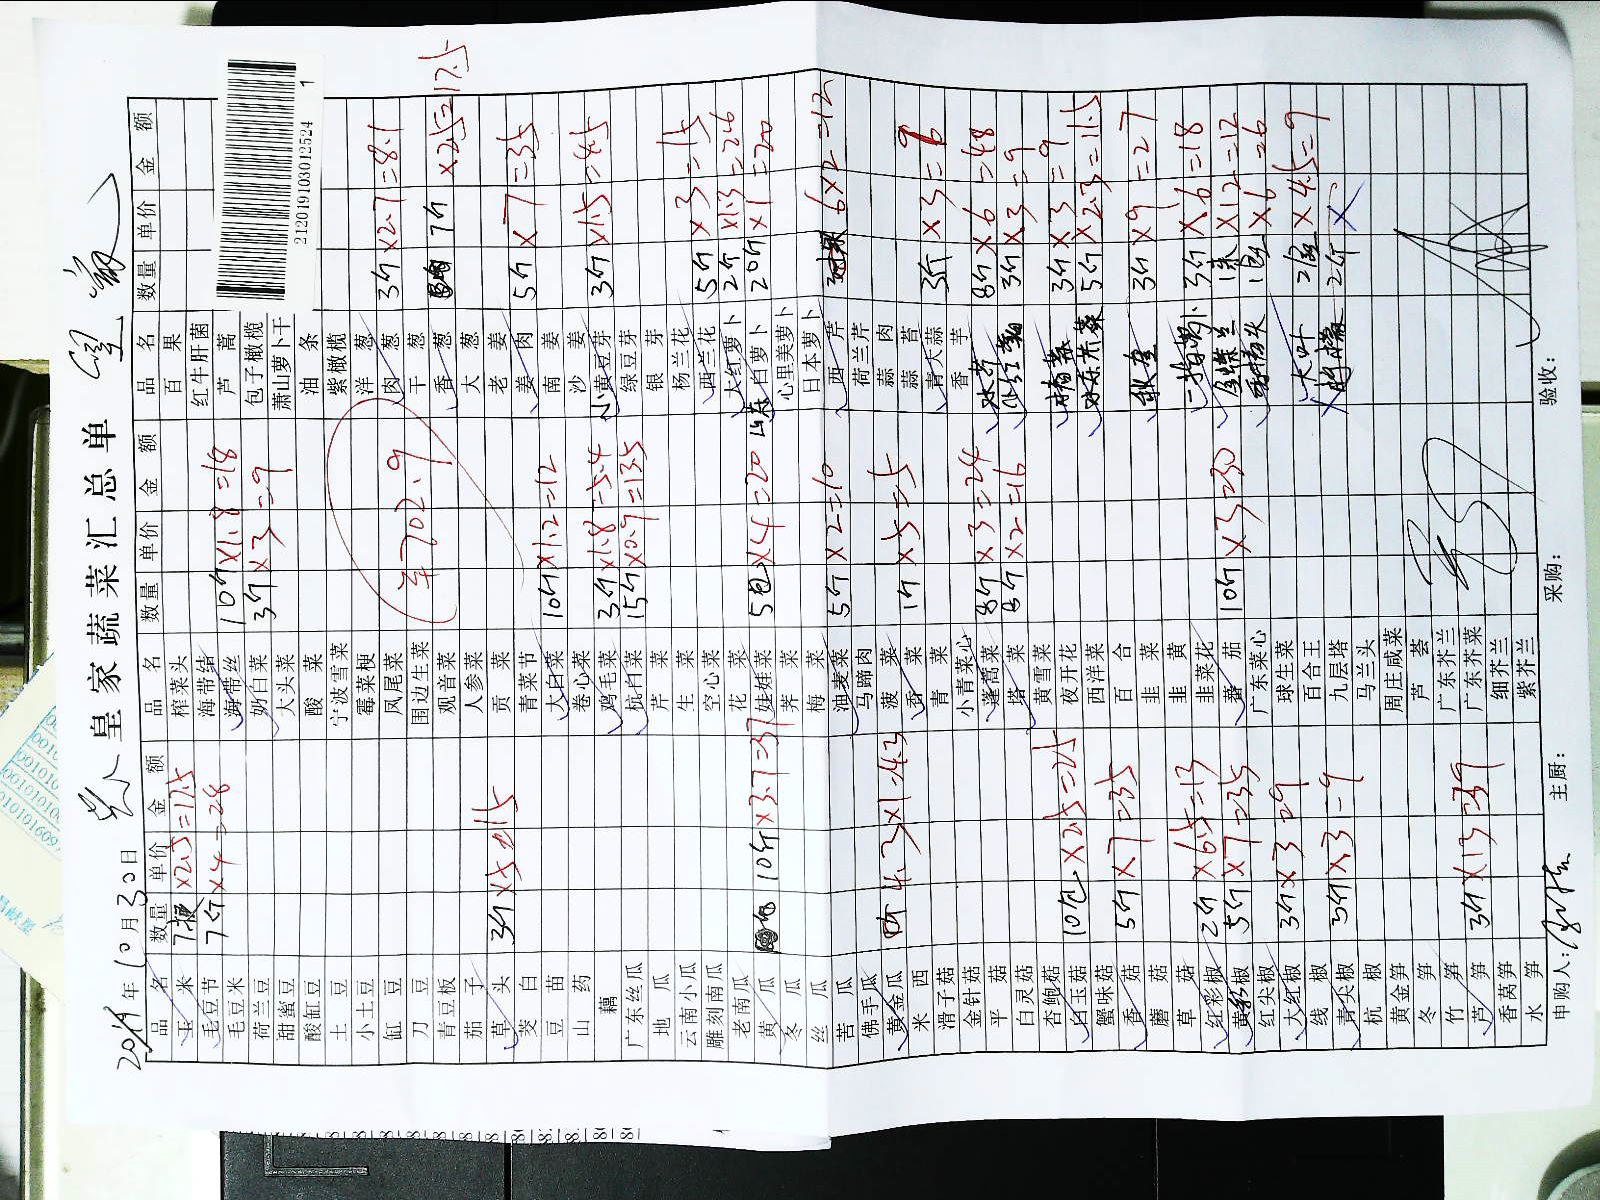 皇家蔬菜汇总单
2019年10月30日
品名 数量 单价 金额 品名 数量 单价 金额 品名 数量 单价 金额
玉米 7梗 ×2.5=17.5 榨菜头 百果
毛豆节 7斤 ×4=28 海带结 红牛肝菌
毛豆米 海带丝 10斤 ×1.8=18 芦蒿
荷兰豆 奶白菜 3斤 ×3=9 包子橄榄
甜蜜豆 大头菜 萧山萝卜干
酸缸豆 酸菜 油条
土豆 宁波雪菜 紫橄榄
小土豆 霉菜梗 洋葱
缸豆 凤尾菜 肉葱 3斤 ×2.7=8.1
刀豆 围边生菜 干葱
青豆板 观音菜 香葱 7斤 ×2.5=17.5
茄子 人参菜 大葱
草头 3斤 ×5=15 贡菜 老姜
茭白 青菜节 姜肉 5斤 ×7=35
豆苗 大白菜 10斤 ×1.2=12 南姜
山药 卷心菜 沙姜
藕 鸡毛菜 3斤 ×1.8=5.4 小黄豆芽 3斤 ×1.5=4.5
广东丝瓜 杭白菜 15斤 ×0.9=13.5 绿豆芽
地瓜 芹菜 银芽
云南小瓜 生菜 杨兰花
雕刻南瓜 空心菜 西兰花 5斤 ×3=15
老南瓜 花菜 大红萝卜 2斤 ×1.3=2.6
黄瓜 10斤 ×3.7=37 娃娃菜 5包 ×4=20 山东白萝卜 20斤 ×1=20
冬瓜 荠菜 心里美萝卜
丝瓜 梅菜 日本萝卜
苦瓜 油麦菜 5斤 ×2=10 西芹 6×2=12
佛手瓜 马蹄肉 荷兰芹
黄金瓜 4.3×1=4.3 菠菜 蒜肉
米西 香菜 1斤 ×5=5 蒜苔
滑子菇 青菜 青大蒜 3斤 ×3=9
金针菇 小青菜心 香芋
平菇 蓬蒿菜 8斤 ×3=24 8斤 ×6=48
白灵菇 塔菜 8斤 ×2=16 3斤 ×3=9
杏鲍菇 黄雪菜
白玉菇 10包 ×2.5=25 夜开花 3斤 ×3=9
蟹味菇 西洋菜 5斤 ×2.3=11.5
香菇 5斤 ×7=35 百合
蘑菇 韭菜 3斤 ×9=27
草菇 韭黄
红彩椒 2斤 ×6.5=13 韭菜花 3斤 ×6=18
黄彩椒 5斤 ×7=35 番茄 10斤 ×3=30 ×12=12
红尖椒 广东菜心 ×6=6
大红椒 3斤 ×3=9 球生菜
线椒 百合王 大叶 2盒 ×4.5=9
青尖椒 3斤 ×3=9 九层塔 2斤 ×
杭椒 马兰头
黄金笋 周庄咸菜
冬笋 芦荟
竹笋 广东芥兰
芦笋 3斤 ×13=39 广东芥菜
香莴笋 细芥兰
水笋 紫芥兰
申购人： 主厨： 采购： 验收：
702.9
2120191030125241